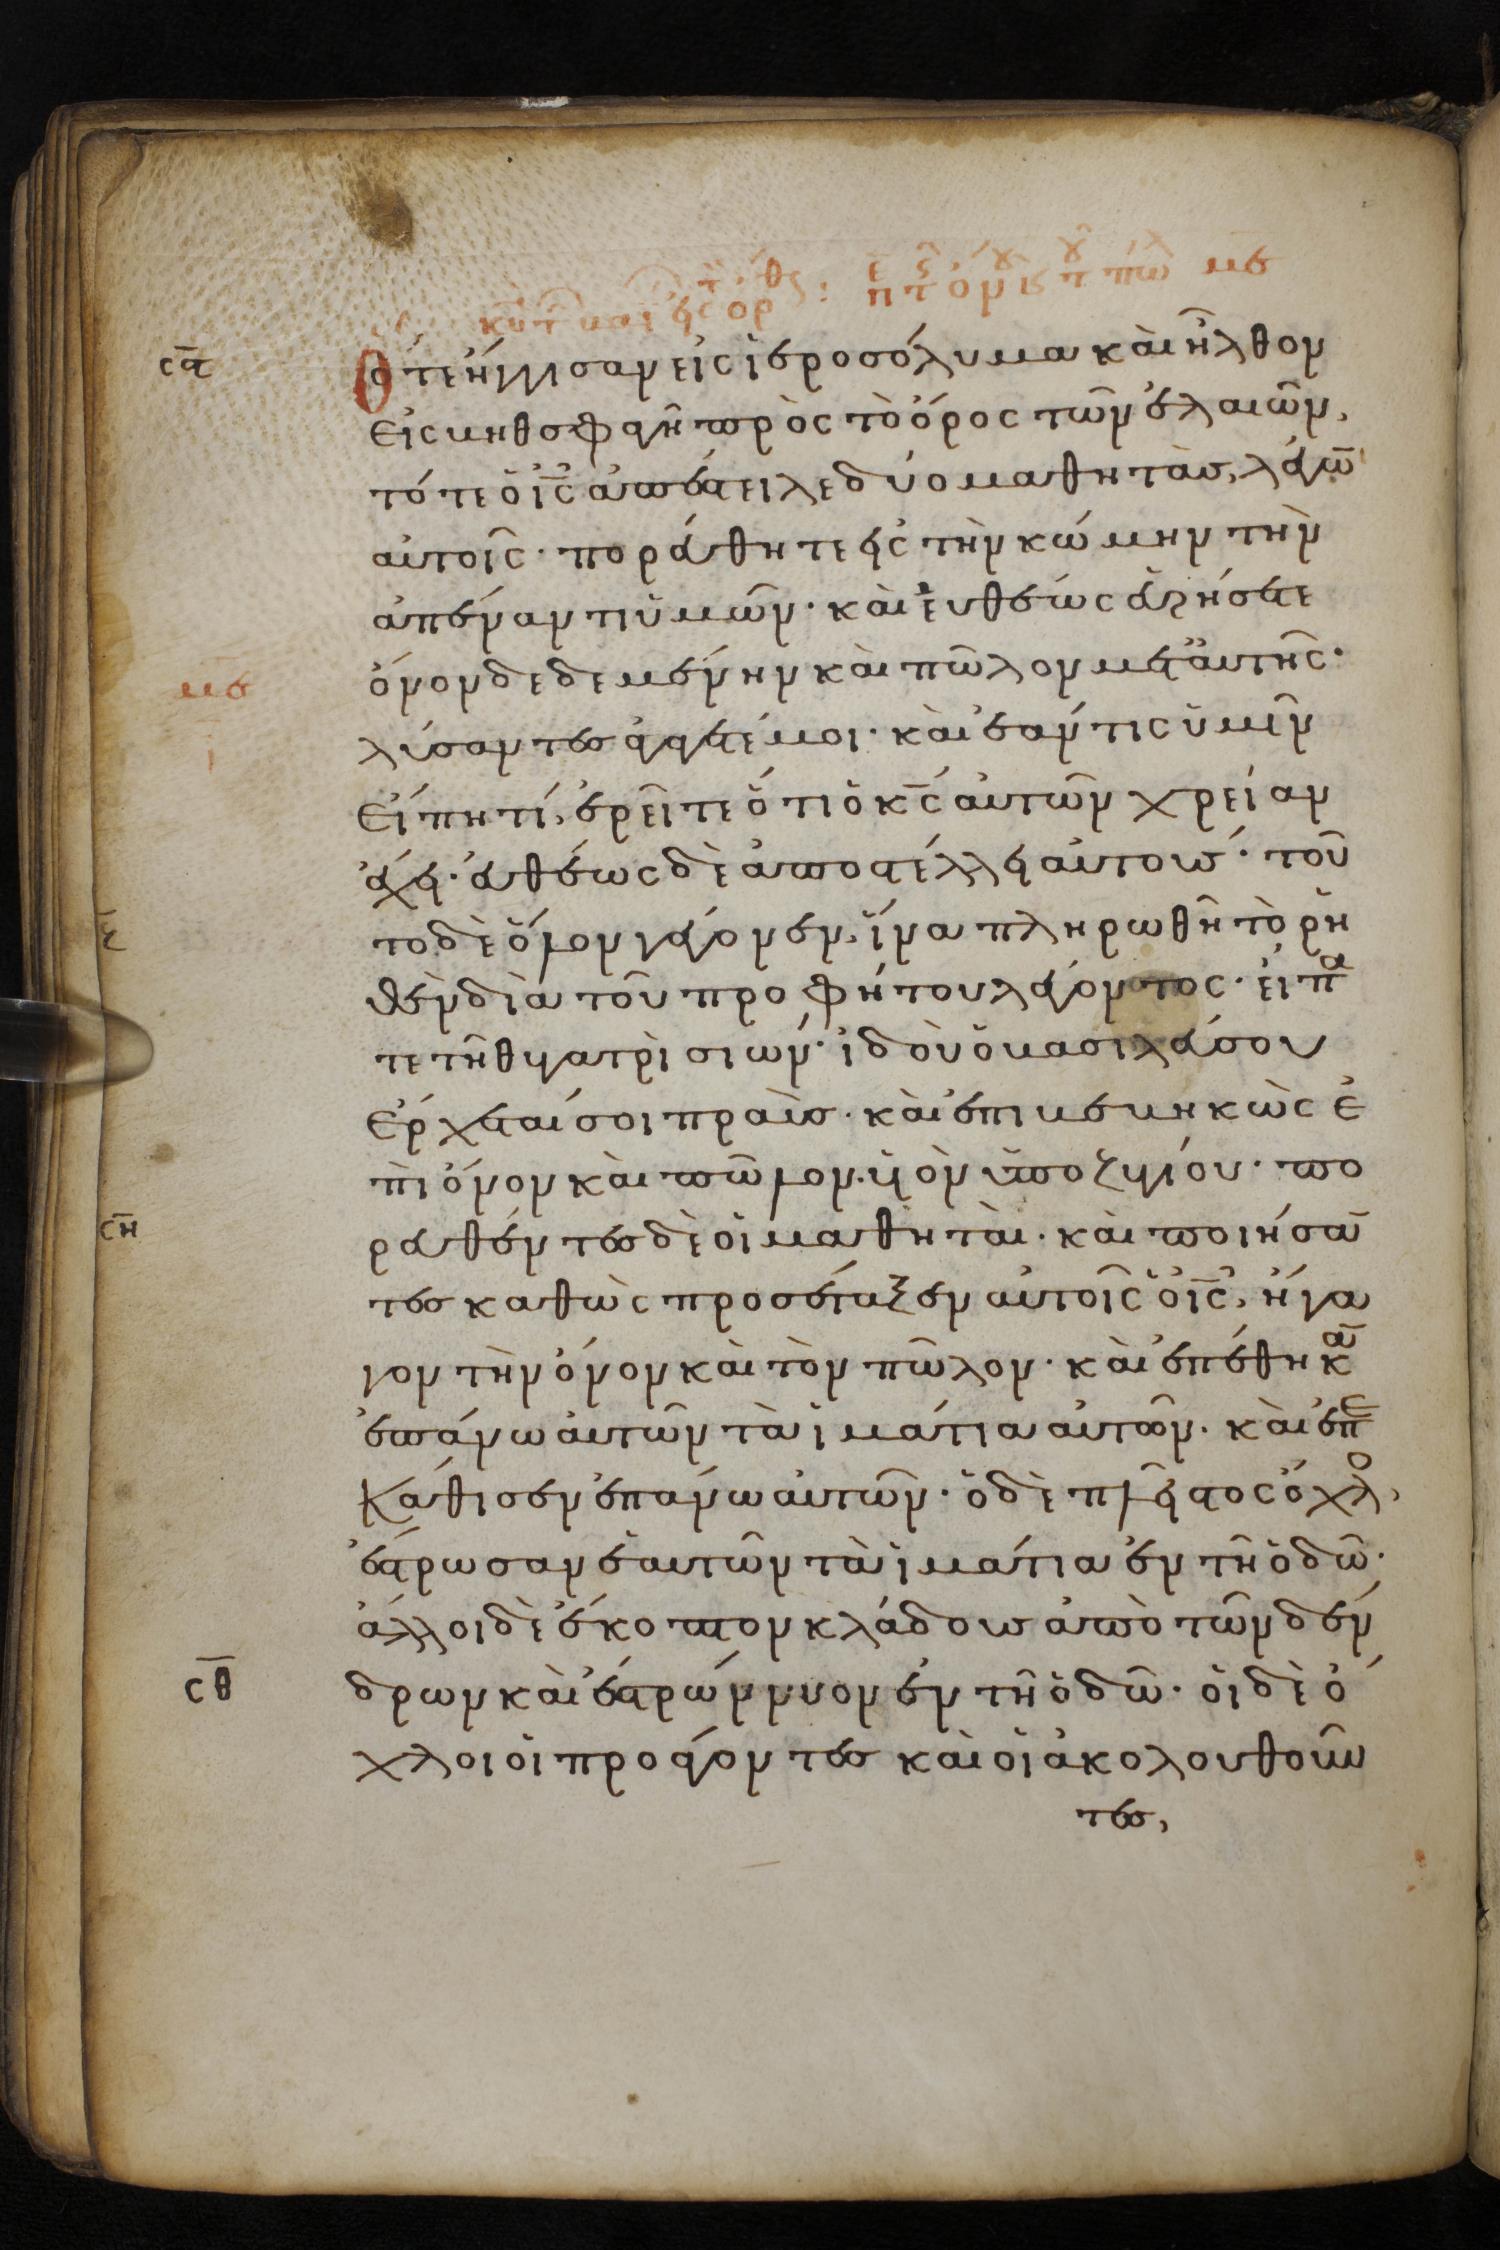 με
ϲϛ
Ὅτε ἤγγισαν εἰς ἱεροσόλυμα καὶ ἦλθον
εἰς βηθσφαγῆ πρὸς τὸ ὄρος τῶν ἐλαιῶν,
τότε ὁ ις̅ ἀπέστειλε δύο μαθητὰς, λέγω̅
αὐτοῖς· πορεύθητε εἰς τὴν κώμην τὴν
ἀπέναντι ὑμῶν· καὶ εὐθέως εὑρήσετε
με
ὄνον δεδεμένην καὶ πῶλον μετ' αὐτῆς·
λύσαντες ἀγάγετέ μοι· καὶ ἐάν τις ὑμῖν
εἴπη τί, ἐρεῖτε ὅτι ὁ κς̅ αὐτῶν χρείαν
ἔχει· εὐθέως δὲ ἀποστέλλει αὐτούς· τοῦ
το δὲ ὅλον γέγονεν, ἵνα πληρωθῆ τὸ ῥη
θὲν διὰ τοῦ προφήτου λέγοντος· εἴπα
τε τῆ θυγατρὶ σιών· ἰδοὺ ὁ βασιλεύς σου
ἔρχεταί σοι πραΰς· καὶ ἐπιβεβηκὼς ἐ
πὶ ὄνον καὶ πῶλον υἱὸν ὑποζυγίου· πο
ϲη
ρευθέντες δὲ οἱ μαθηταὶ· καὶ ποιήσα̅
τες καθὼς προσέταξεν αὐτοῖς ὁ ις̅, ἤγα
γον τὴν ὄνον καὶ τὸν πῶλον· καὶ ἐπέθηκα̅
ἐπάνω αὐτῶν τὰ ἱμάτια αὐτῶν· καὶ ἐπε
κάθισεν ἐπάνω αὐτῶν· ὁ δὲ πλεῖστος ὄχλο,
ἔστρωσαν ἑαυτῶν τὰ ἱμάτια ἐν τῆ ὁδῶ·
ἄλλοι δὲ ἔκοπτον κλάδους ἀπὸ τῶν δέν
ϲθ
δρων καὶ ἐστρώννυον ἐν τῆ ὁδῶ· οἱ δὲ ὄ
χλοι οἱ προάγοντες καὶ οἱ ἀκολουθοῦν
τες,